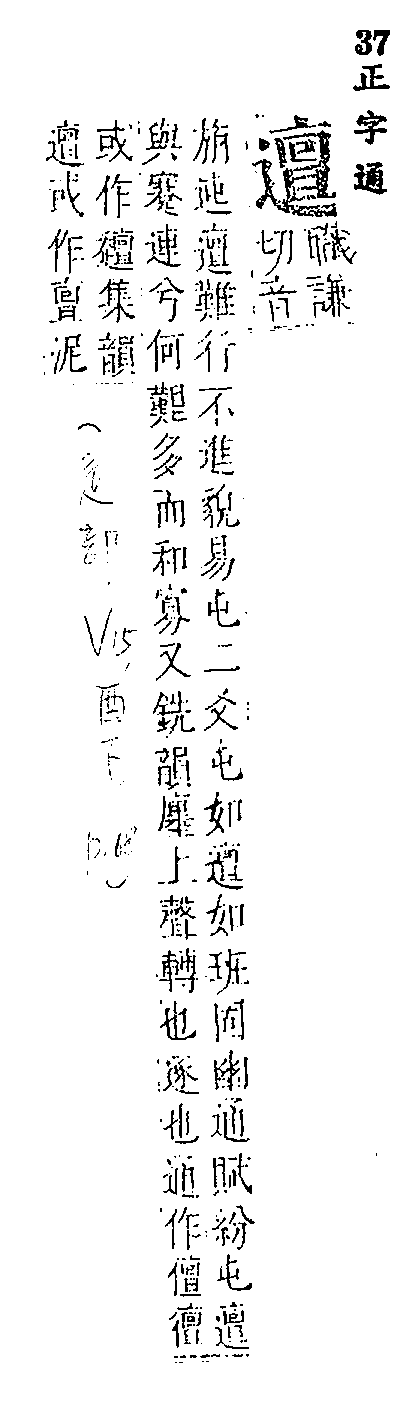 37正字通
邅
職謙
切音
旃迍邅難行不進貌易屯二爻屯如邅如班固幽通賦紛屯邅
與蹇連兮何艱多而和寡又銑韻上聲轉也逐也通作儃
或作集韻
邅或作泥
(辵部, V15, 酉下 p.68)